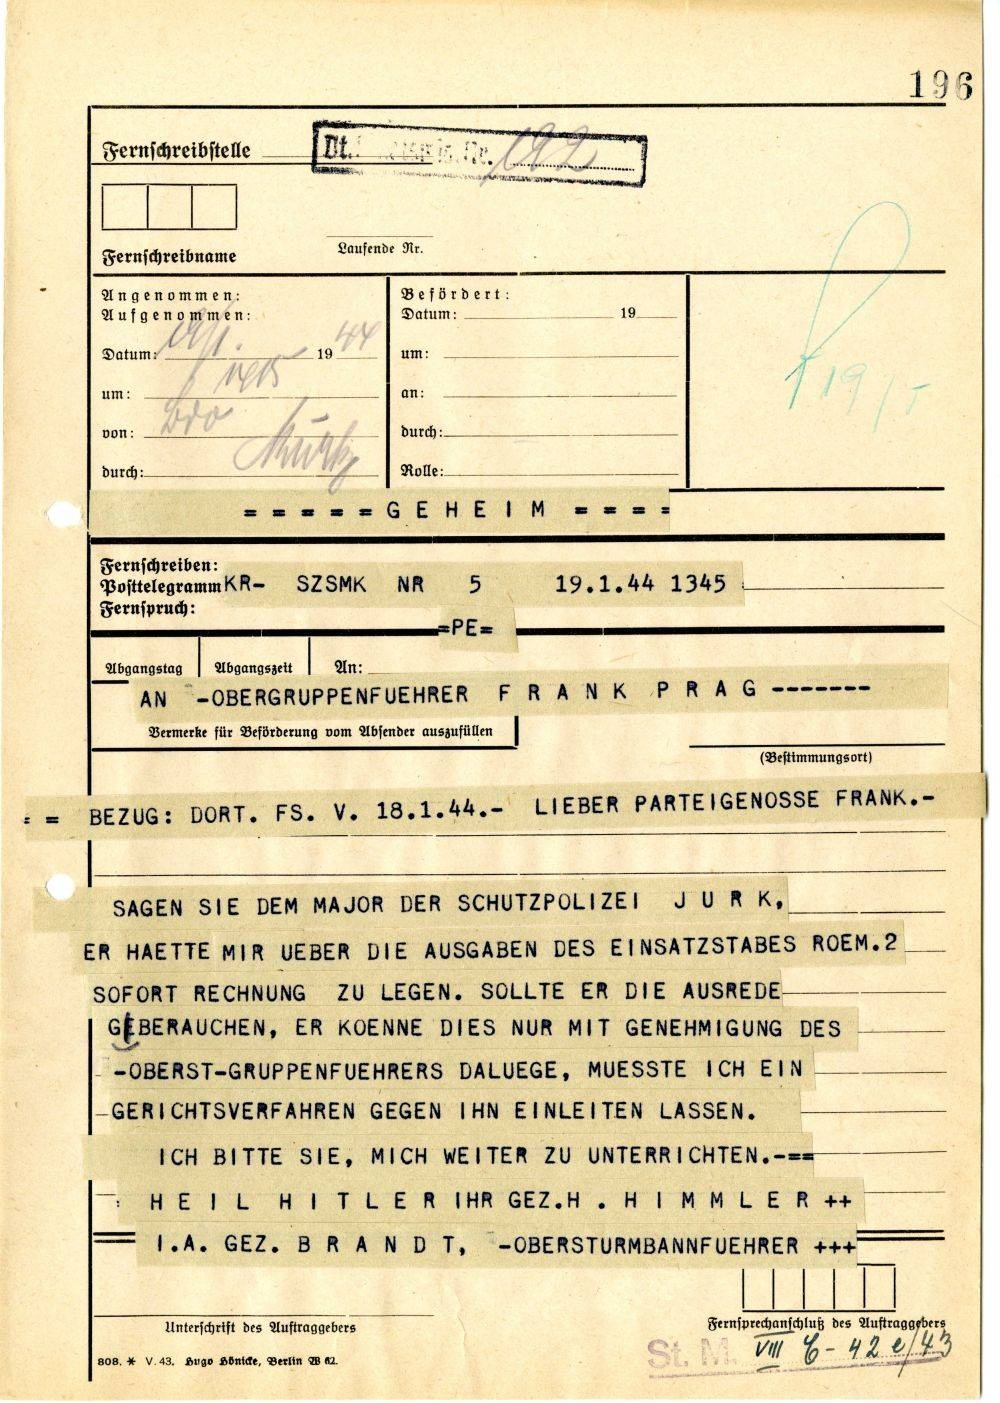 196
Fernschreibstelle
Dt. Nr. 192
Fernschreibname
Laufende Nr.
Angenommen:
Aufgenommen:
Datum: 19/1. 19 44
um: 1405
von: Bro
durch:
Befördert:
Datum: 19
um:
an:
durch:
Rolle:
19/1
= = = = = G E H E I M = = = =
Fernschreiben:
Posttelegramm KR- SZSMK NR 5 19.1.44 1345
Fernspruch:
=PE=
Abgangstag Abgangszeit An:
AN -OBERGRUPPENFUEHRER F R A N K P R A G -------
Vermerke für Beförderung vom Absender auszufüllen
(Bestimmungsort)
= = BEZUG: DORT. FS. V. 18.1.44.- LIEBER PARTEIGENOSSE FRANK.-
SAGEN SIE DEM MAJOR DER SCHUTZPOLIZEI J U R K,
ER HAETTE MIR UEBER DIE AUSGABEN DES EINSATZSTABES ROEM.2
SOFORT RECHNUNG ZU LEGEN. SOLLTE ER DIE AUSREDE
GEBERAUCHEN, ER KOENNE DIES NUR MIT GENEHMIGUNG DES
-OBERST-GRUPPENFUEHRERS DALUEGE, MUESSTE ICH EIN
GERICHTSVERFAHREN GEGEN IHN EINLEITEN LASSEN.
ICH BITTE SIE, MICH WEITER ZU UNTERRICHTEN.-==
: H E I L H I T L E R IHR GEZ.H . H I M M L E R ++
I.A. GEZ. B R A N D T, -OBERSTURMBANNFUEHRER +++
Unterschrift des Auftraggebers
Fernsprechanschluß des Auftraggebers
808. * V. 43. Hugo Hönicke, Berlin W 62.
St. M. VIII C - 42 e/43